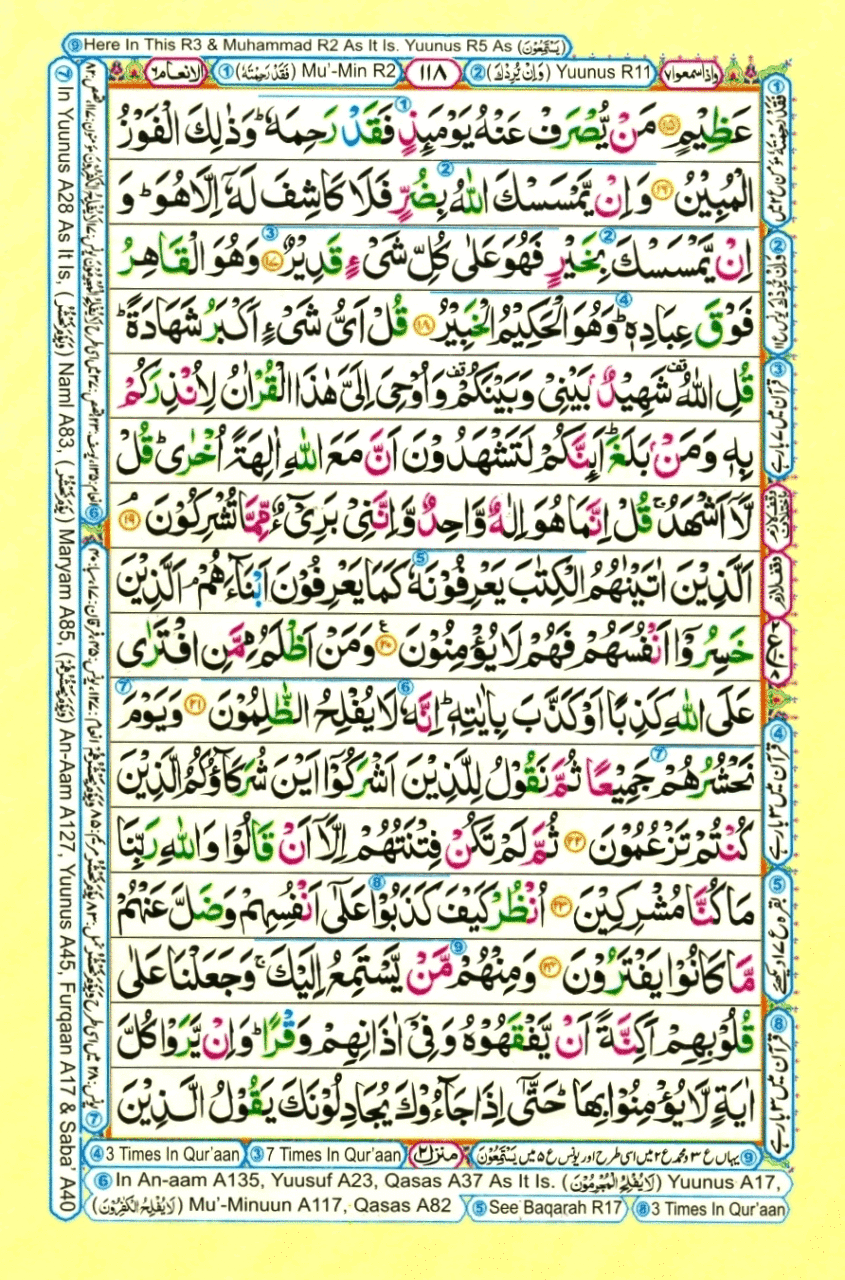 ⑨ Here In This R3 & Muhammad R2 As It Is. Yuunus R5 As (يَسْتَمِعُوْنَ)
الانعام ٦ ① (فَقَدْ رَحِمَهٗ) Mu'-Min R2 ١١٨ ② (وَاِنْ يُّرِدْكَ) Yuunus R11 واذاسمعوا ٧
عَظِيْمٍ ١٥ مَنْ يُّصْرَفْ عَنْهُ يَوْمَئِذٍ فَقَدْ رَحِمَهٗ ؕ وَذٰلِكَ الْفَوْزُ
الْمُبِيْنُ ١٦ وَاِنْ يَّمْسَسْكَ اللّٰهُ بِضُرٍّ فَلَا كَاشِفَ لَهٗۤ اِلَّا هُوَ ؕ وَ
اِنْ يَّمْسَسْكَ بِخَيْرٍ فَهُوَ عَلٰى كُلِّ شَىْءٍ قَدِيْرٌ ١٧ وَهُوَ الْقَاهِرُ
فَوْقَ عِبَادِهٖ ؕ وَهُوَ الْحَكِيْمُ الْخَبِيْرُ ١٨ قُلْ اَىُّ شَىْءٍ اَكْبَرُ شَهَادَةً ؕ
قُلِ اللّٰهُ قف شَهِيْدٌۢ بَيْنِىْ وَبَيْنَكُمْ قف وَاُوْحِىَ اِلَىَّ هٰذَا الْقُرْاٰنُ لِاُنْذِرَكُمْ
بِهٖ وَمَنْۢ بَلَغَ ؕ اَئِنَّكُمْ لَتَشْهَدُوْنَ اَنَّ مَعَ اللّٰهِ اٰلِهَةً اُخْرٰى ؕ قُلْ
لَّاۤ اَشْهَدُ ۚ قُلْ اِنَّمَا هُوَ اِلٰهٌ وَّاحِدٌ وَّاِنَّنِىْ بَرِىْٓءٌ مِّمَّا تُشْرِكُوْنَ ۘ ١٩
اَلَّذِيْنَ اٰتَيْنٰهُمُ الْكِتٰبَ يَعْرِفُوْنَهٗ كَمَا يَعْرِفُوْنَ اَبْنَآءَهُمْ ۘ اَلَّذِيْنَ
خَسِرُوْۤا اَنْفُسَهُمْ فَهُمْ لَا يُؤْمِنُوْنَ ٢٠ وَمَنْ اَظْلَمُ مِمَّنِ افْتَرٰى
عَلَى اللّٰهِ كَذِبًا اَوْ كَذَّبَ بِاٰيٰتِهٖ ؕ اِنَّهٗ لَا يُفْلِحُ الظّٰلِمُوْنَ ٢١ وَيَوْمَ
نَحْشُرُهُمْ جَمِيْعًا ثُمَّ نَقُوْلُ لِلَّذِيْنَ اَشْرَكُوْۤا اَيْنَ شُرَكَآؤُكُمُ الَّذِيْنَ
كُنْتُمْ تَزْعُمُوْنَ ٢٢ ثُمَّ لَمْ تَكُنْ فِتْنَتُهُمْ اِلَّاۤ اَنْ قَالُوْا وَاللّٰهِ رَبِّنَا
مَا كُنَّا مُشْرِكِيْنَ ٢٣ اُنْظُرْ كَيْفَ كَذَبُوْا عَلٰٓى اَنْفُسِهِمْ وَضَلَّ عَنْهُمْ
مَّا كَانُوْا يَفْتَرُوْنَ ٢٤ وَمِنْهُمْ مَّنْ يَّسْتَمِعُ اِلَيْكَ ۚ وَجَعَلْنَا عَلٰى
قُلُوْبِهِمْ اَكِنَّةً اَنْ يَّفْقَهُوْهُ وَفِىْۤ اٰذَانِهِمْ وَقْرًا ؕ وَاِنْ يَّرَوْا كُلَّ
اٰيَةٍ لَّا يُؤْمِنُوْا بِهَا ؕ حَتّٰۤى اِذَا جَآءُوْكَ يُجَادِلُوْنَكَ يَقُوْلُ الَّذِيْنَ
② وَاِنْ يُّرِدْكَ يونس ع ١١
③ قرآن میں ٧ بار ہے
④ قرآن میں ٣ بار ہے
⑤ بقرہ ع ١٧ دیکھئے
⑧ قرآن میں ٣ بار ہے
⑦ In Yuunus A28 As It Is, (وَيَوْمَ نَحْشُرُ) Naml A83, (يَوْمَ نَحْشُرُ) Maryam A85, (وَيَوْمَ يَحْشُرُهُمْ) An-Aam A127, Yuunus A45, Furqaan A17 & Saba' A40
④ 3 Times In Qur'aan ③ 7 Times In Qur'aan منزل ٢ ⑨ یہاں ع ٣ و محمد ع ٢ میں اسی طرح اور یونس ع ٥ میں يَسْتَمِعُوْنَ
⑥ In An-aam A135, Yuusuf A23, Qasas A37 As It Is. (لَا يُفْلِحُ الْمُجْرِمُوْنَ) Yuunus A17,
(لَا يُفْلِحُ الْكٰفِرُوْنَ) Mu'-Minuun A117, Qasas A82 ⑤ See Baqarah R17 ⑧ 3 Times In Qur'aan